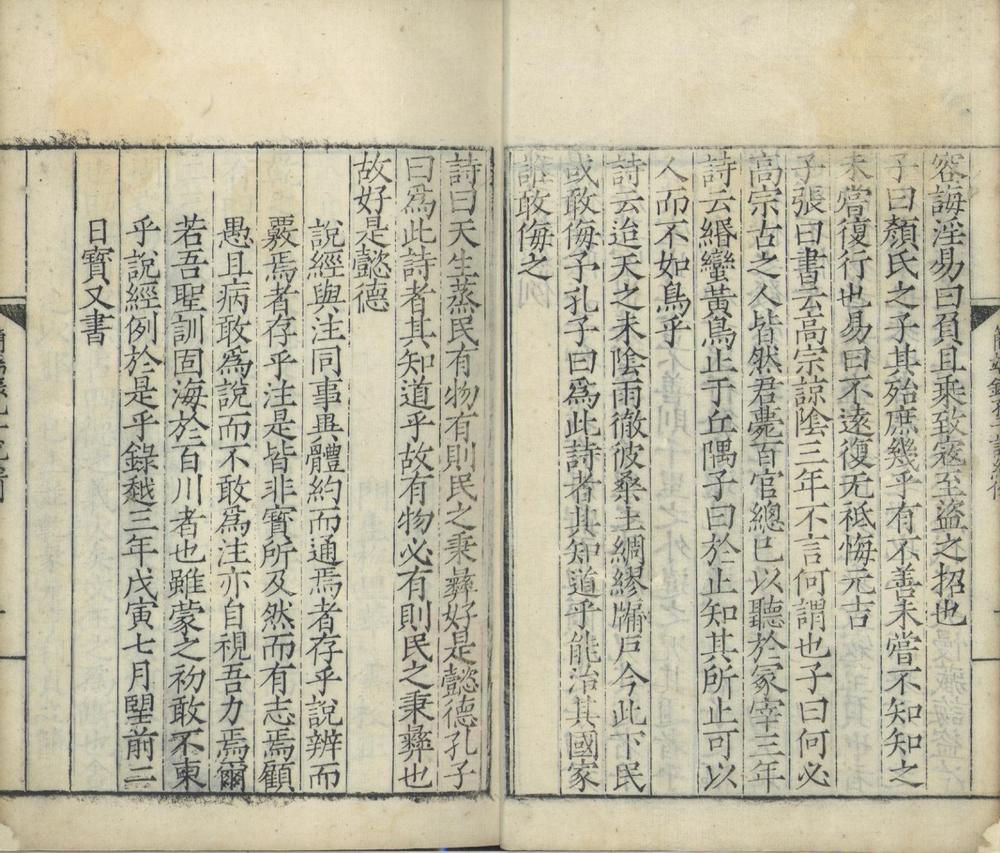 容誨淫易曰負且乘致寇至盜之招也
子曰顏氏之子其殆庶幾乎有不善未嘗不知知之
未嘗復行也易曰不遠復无祗悔元吉
子張曰書云高宗諒陰三年不言何謂也子曰何必
高宗古之人皆然君薨百官緫已以聽於冢宰三年
詩云緡蠻黃鳥止于丘隅子曰於止知其所止可以
人而不如鳥乎
詩云迨天之未陰雨徹彼桑土綢繆牖戶今此下民
或敢侮予孔子曰爲此詩者其知道乎能治其國家
誰敢侮之
詩曰天生蒸民有物有則民之秉彝好是懿德孔子
曰爲此詩者其知道乎故有物必有則民之秉彝也
故好是懿德
說經與注同事異體約而通焉者存乎說辨而
覈焉者存乎注是皆非寳所及然而有志焉顧
愚且病敢爲說而不敢爲注亦自視吾力焉爾
若吾聖訓固海於百川者也雖蒙之初敢不東
乎說經例於是乎錄越三年戊寅七月朢前二
日寳又書